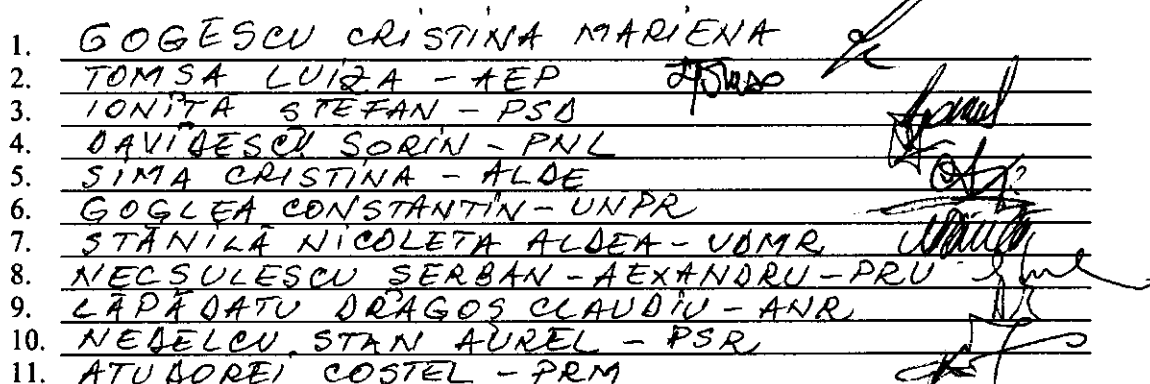 1. GOGESCU CRISTINA MARIENA
2. TOMSA LUIZA - AEP
3. IONITĂ STEFAN - PSD
4. DAVIDESCU SORIN - PNL
5. SIMA CRISTINA - ALDE
6. GOGLEA CONSTANTIN - UNPR
7. STĂNILĂ NICOLETA ALDEA - UDMR
8. NECSULESCU SERBAN - AEXANDRU - PRU
9. LĂPĂDATU DRAGOS CLAUDIU - ANR
10. NEDELCU STAN AUREL - PSR
11. ATUDOREI COSTEL - PRM